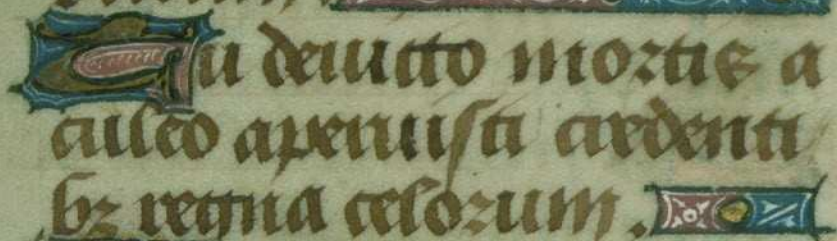 Tu deuicto mortis a
culeo aperuisti credenti
bz regna celorum.